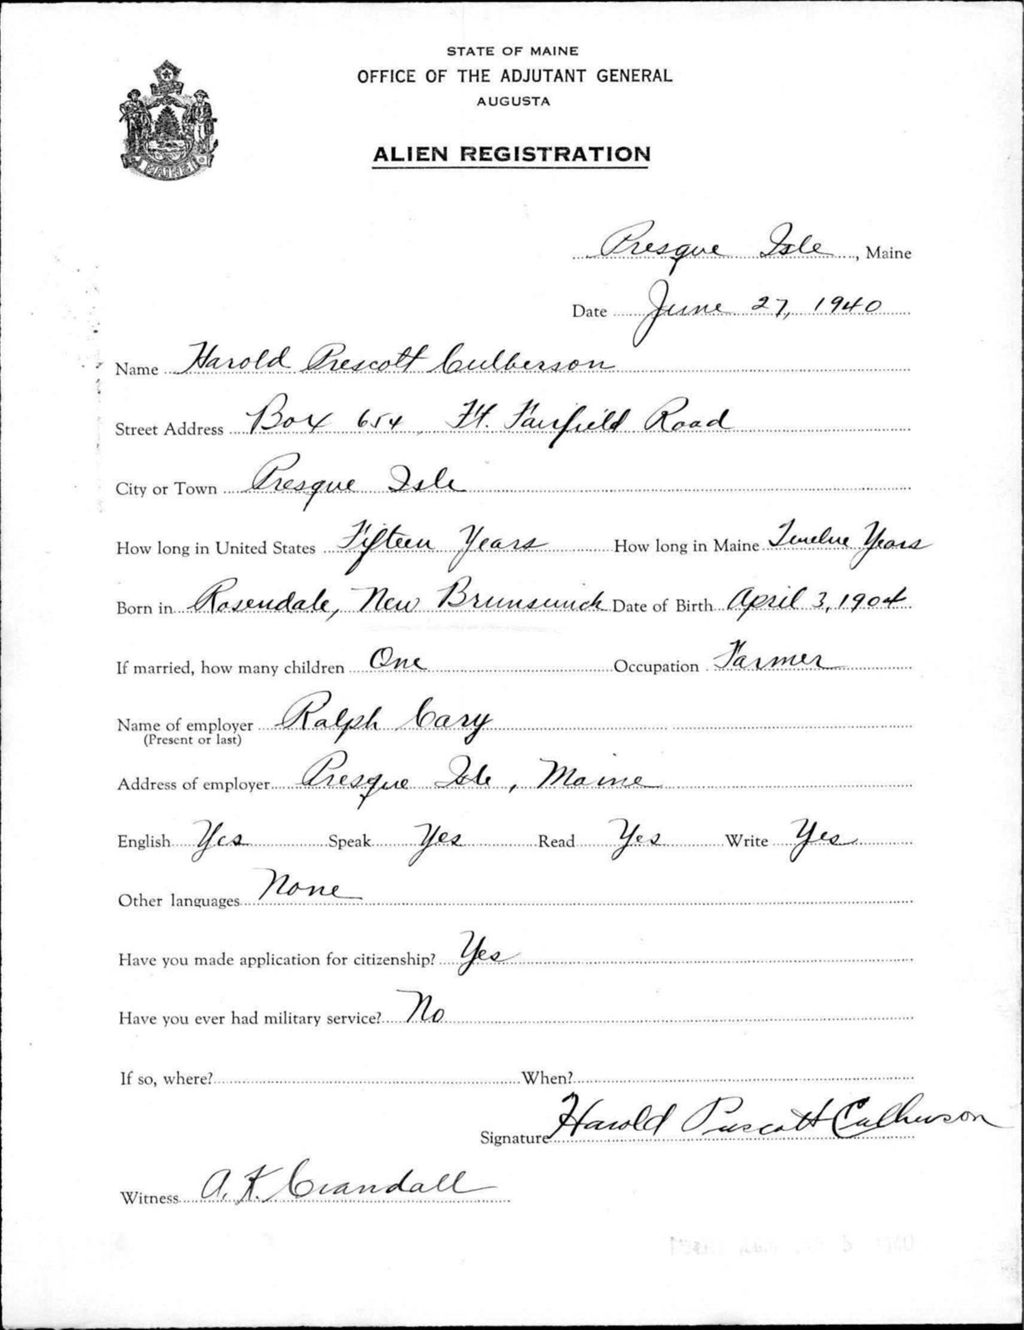 STATE OF MAINE
OFFICE OF THE ADJUTANT GENERAL
AUGUSTA
ALIEN REGISTRATION
MAINE
Presque Isle, Maine
Date June 27, 1940
Name Harold Prescott Culberson
Street Address Box 654, Ft. Fairfield Road
City or Town Presque Isle
How long in United States Fifteen Years How long in Maine Twelve Years
Born in Rosendale, New Brunswick Date of Birth April 3, 1904
If married, how many children One Occupation Farmer
Name of employer Ralph Cary
(Present or last)
Address of employer Presque Isle, Maine
English Yes Speak Yes Read Yes Write Yes
Other languages None
Have you made application for citizenship? Yes
Have you ever had military service? No
If so, where? When?
Signature Harold Prescott Culberson
Witness A. K. Crandall